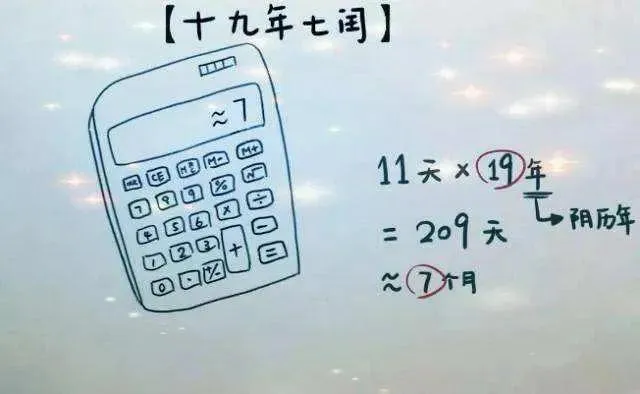 【十九年七闰】
≈7
CE M- M+
7 8 9 % √
4 5 6 × ÷
1 2 3 + -
0 · +/- =
11天×19年
→阴历年
= 209天
≈7个月